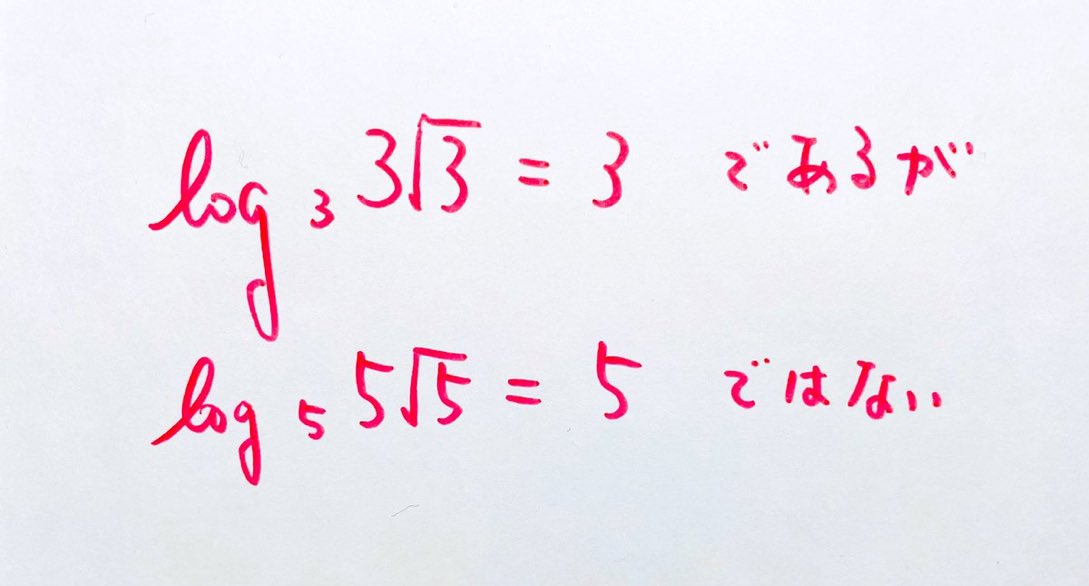 log₃ 3√3 = 3 であるが
log₅ 5√5 = 5 ではない